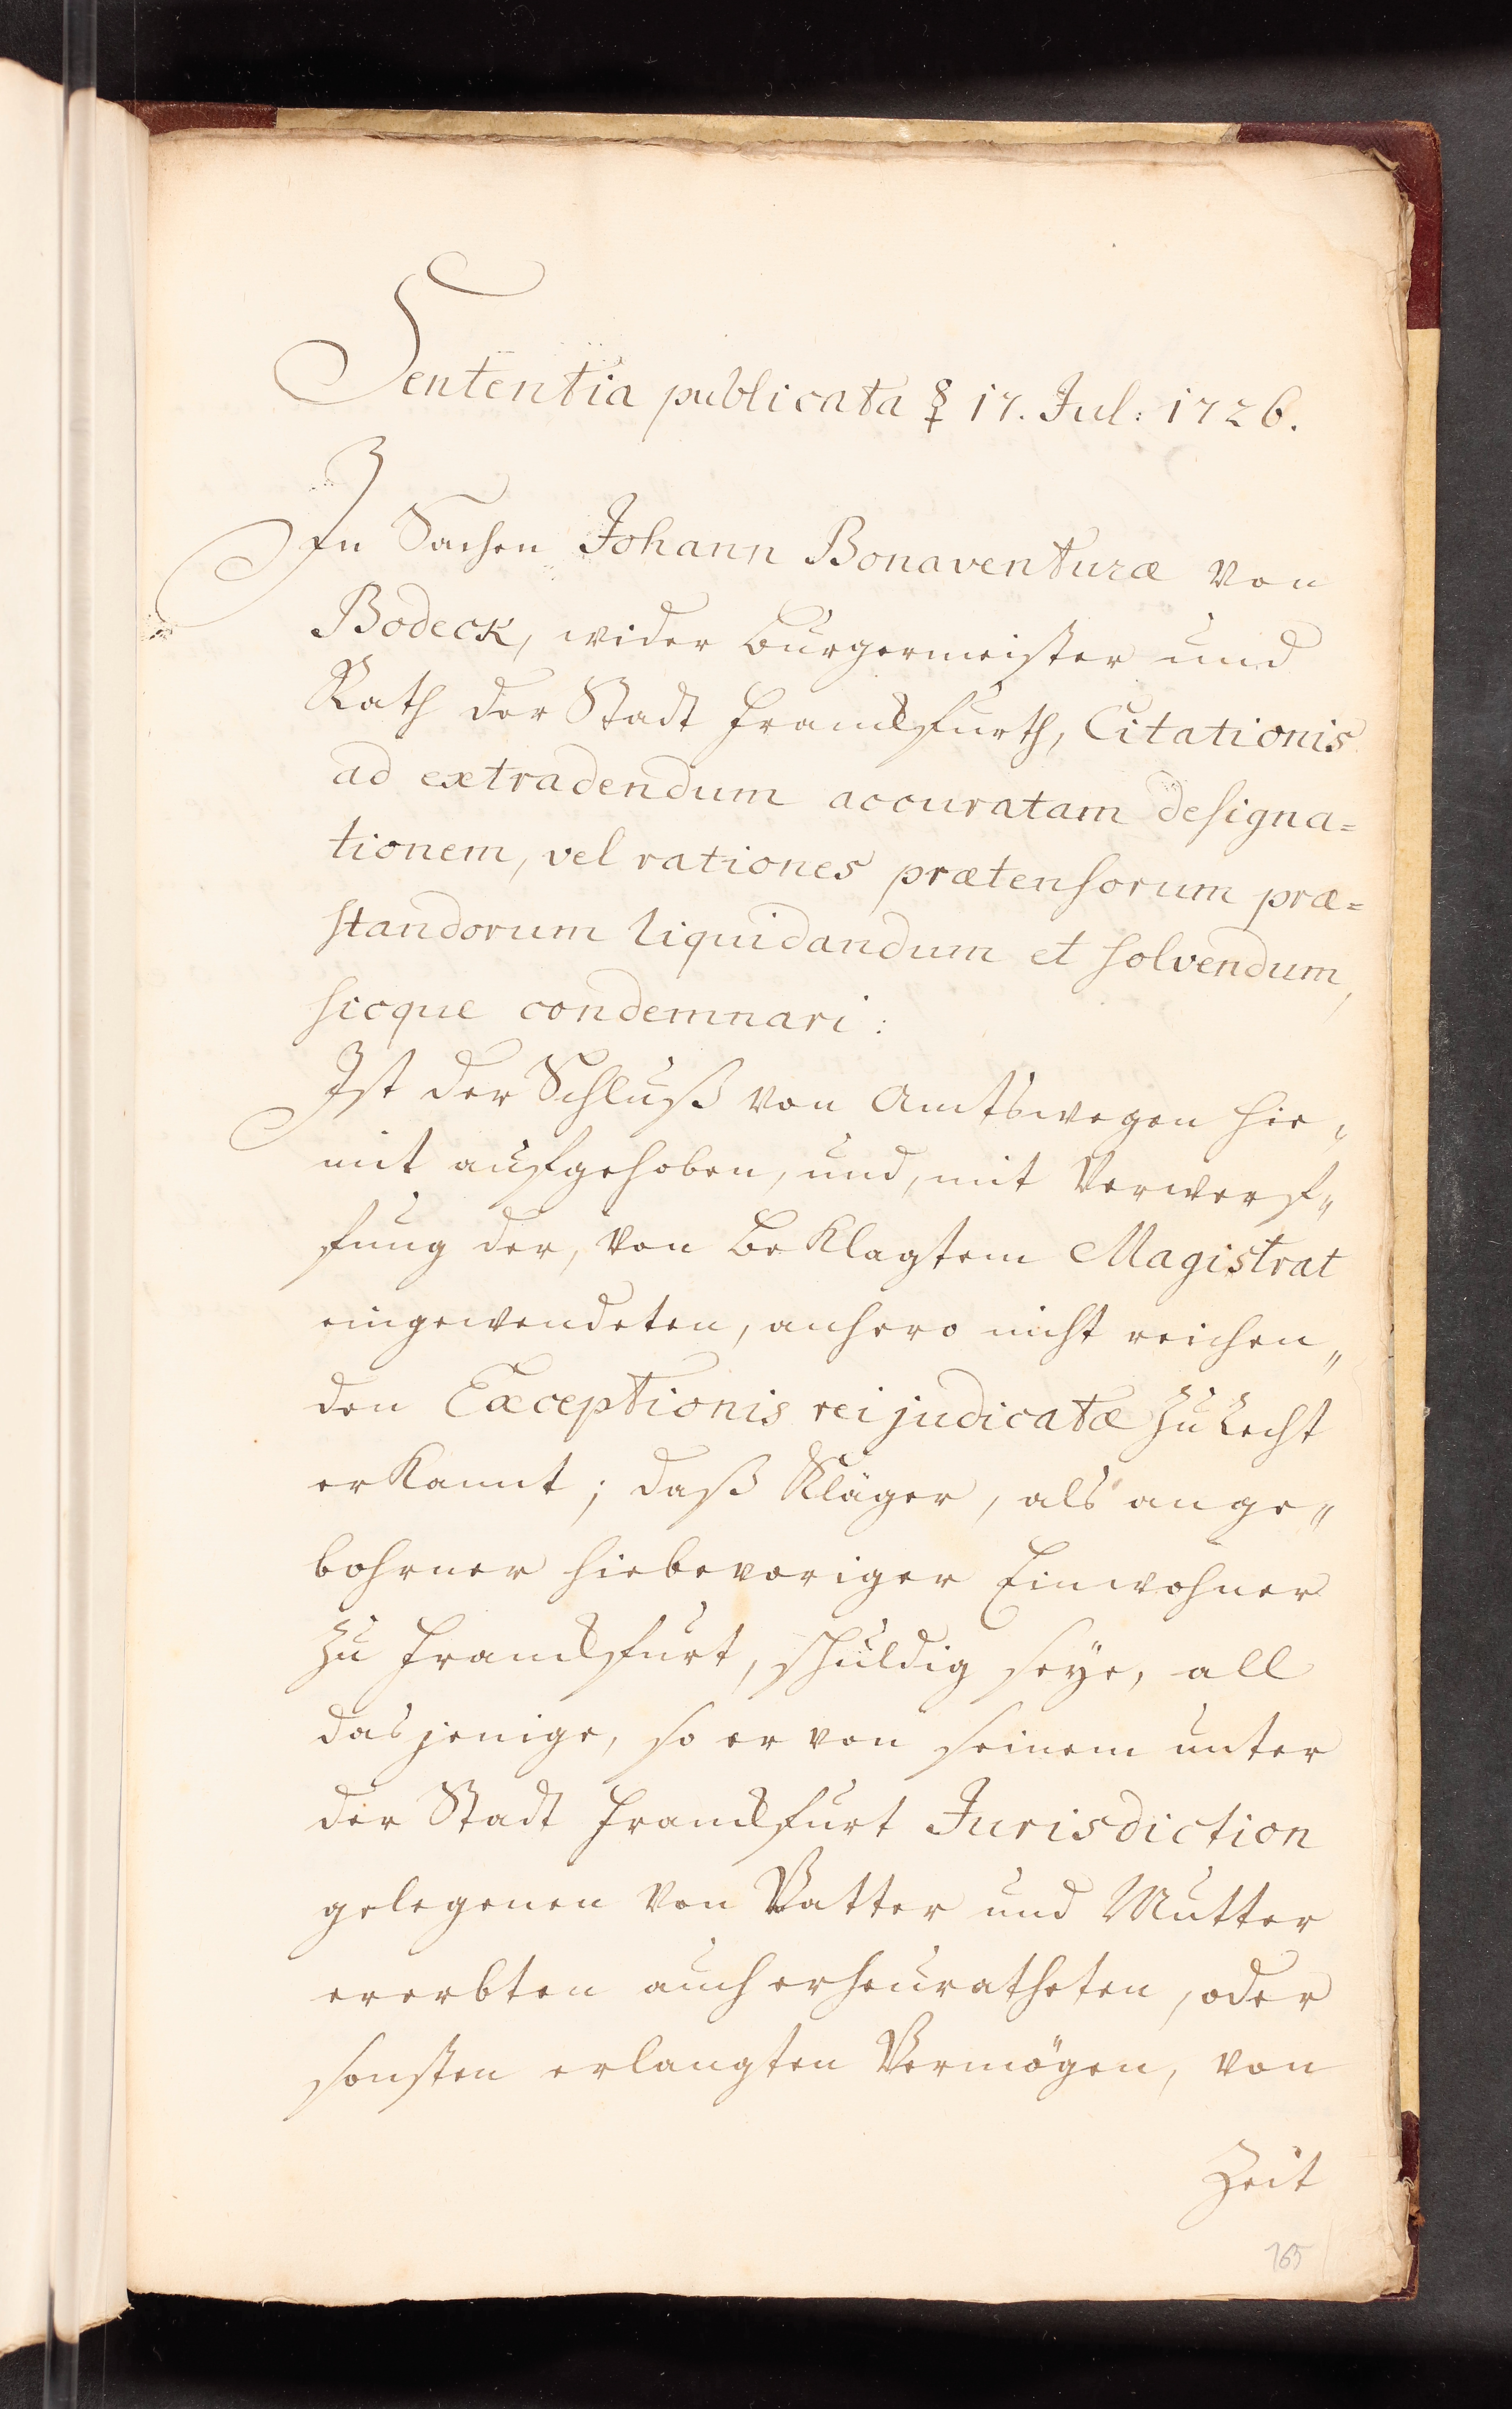 Sententia publicata ☿ 17. Jul: 1726.
In Sachen Johann Bonaventuræ von
Bodeck, wider Burgermeister und
Rath der Stadt Franckfurth, Citationis
ad extradendum accuratam designa=
tionem, vel rationes prætensorum præ=
standorum liquidandum et solvendum,
sicque condemnari:
Ist der Schluß von Amtswegen hie„
mit aufgehoben, und, mit Verwerf„
fung der, von beklagtem Magistrat
eingewendeten, anhero nicht reichen„
den Exceptionis rei judicatæ zu Recht
erkannt; daß Kläger, als ange„
bohrner hiebevoriger Einwohner
zu Franckfurt, schuldig seye, all
dasjenige, so er von seinem unter
der Stadt Franckfurt Jurisdiction
gelegenen von Vatter und Mutter
ererbten auch erheuratheten, oder
sonsten erlangten Vermögen, von
Zeit
165